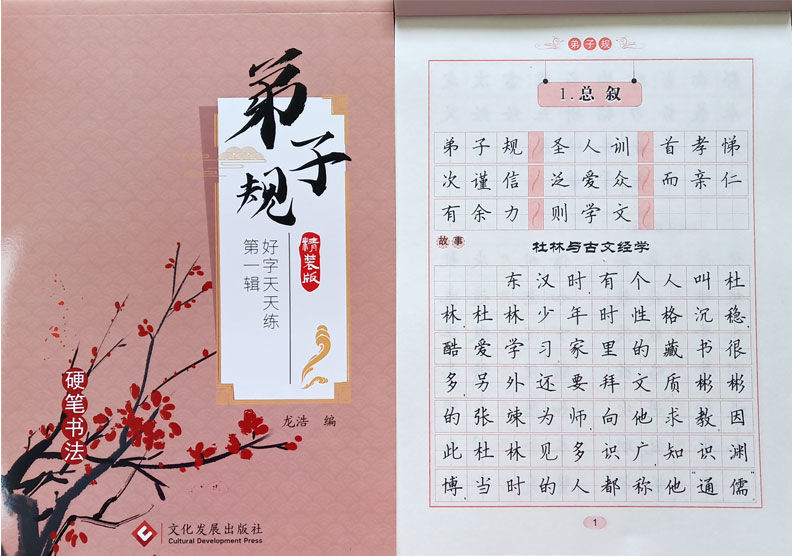 弟子规
精装版
好字天天练
第一辑
龙浩 编
硬笔书法
文化发展出版社
Cultural Development Press
弟子规
1.总 叙
弟子规 圣人训 首孝悌
次谨信 泛爱众 而亲仁
有余力 则学文
故事
杜林与古文经学
东汉时,有个人叫杜
林,杜林少年时性格沉稳,
酷爱学习,家里的藏书很
多,另外还要拜文质彬彬
的张竦为师,向他求教,因
此,杜林见多识广,知识渊
博,当时的人都称他“通儒
1